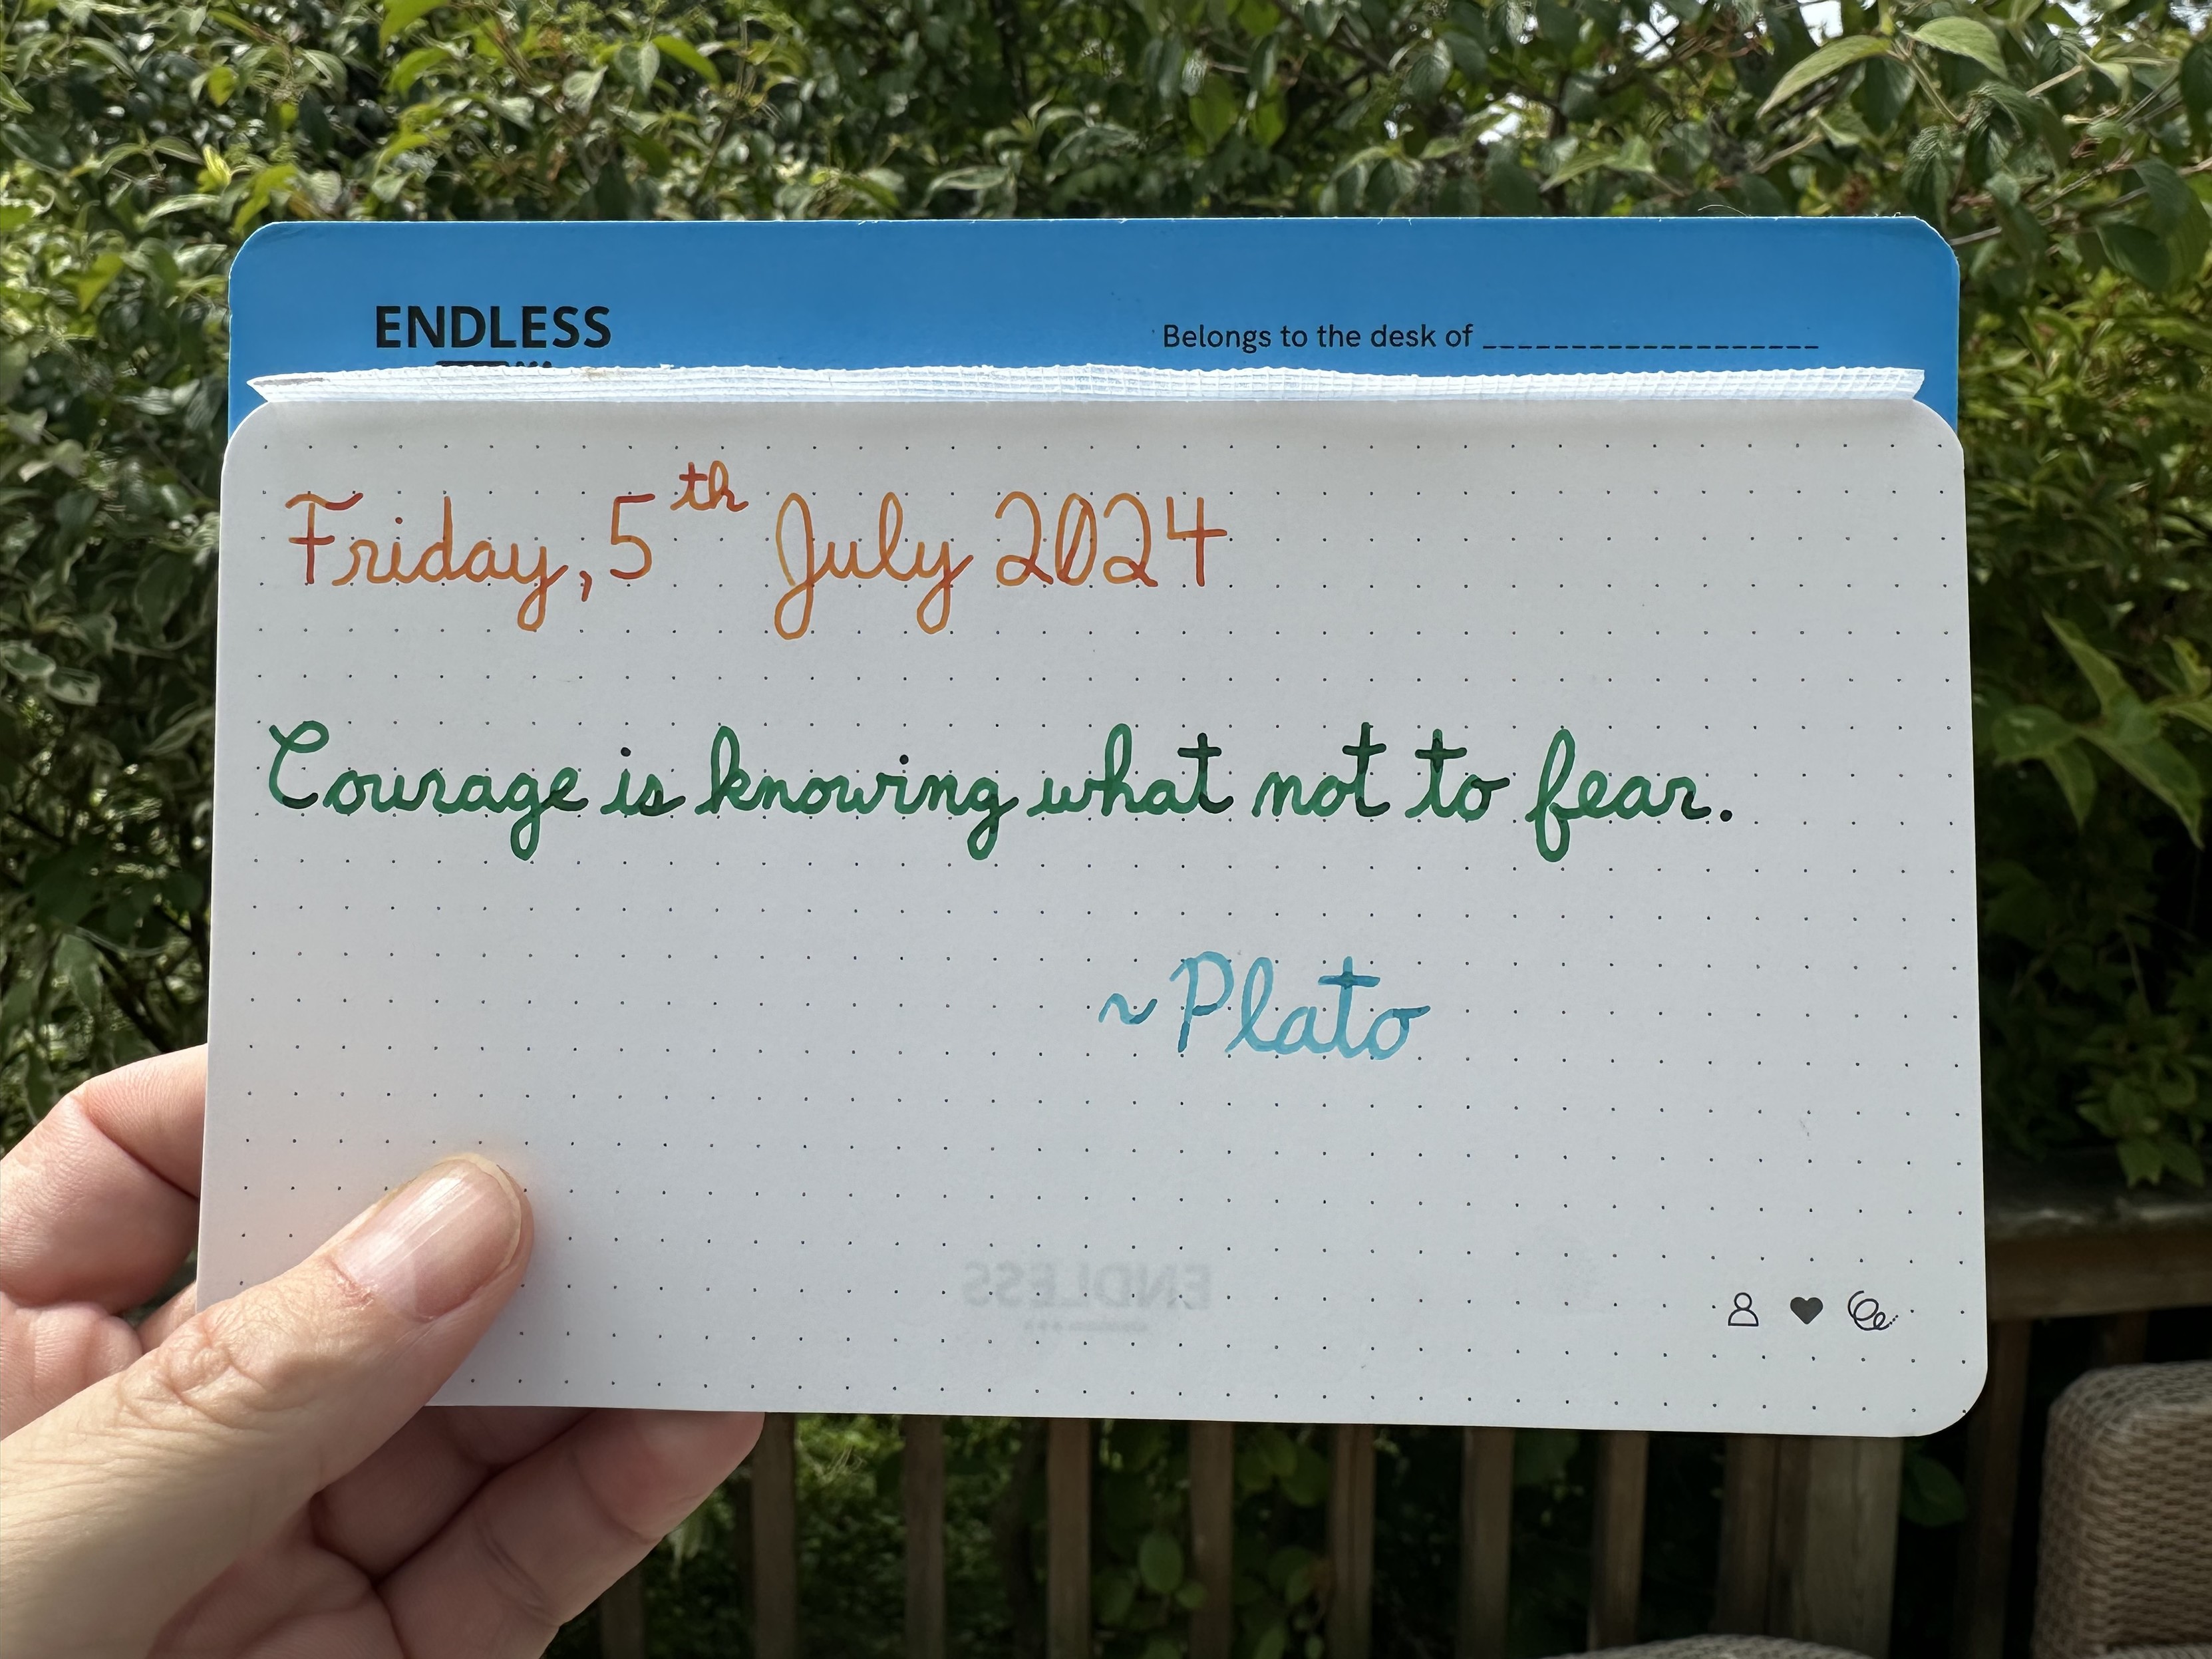 ENDLESS
Belongs to the desk of ___________________
Friday, 5th July 2024
Courage is knowing what not to fear.
~Plato
ENDLESS